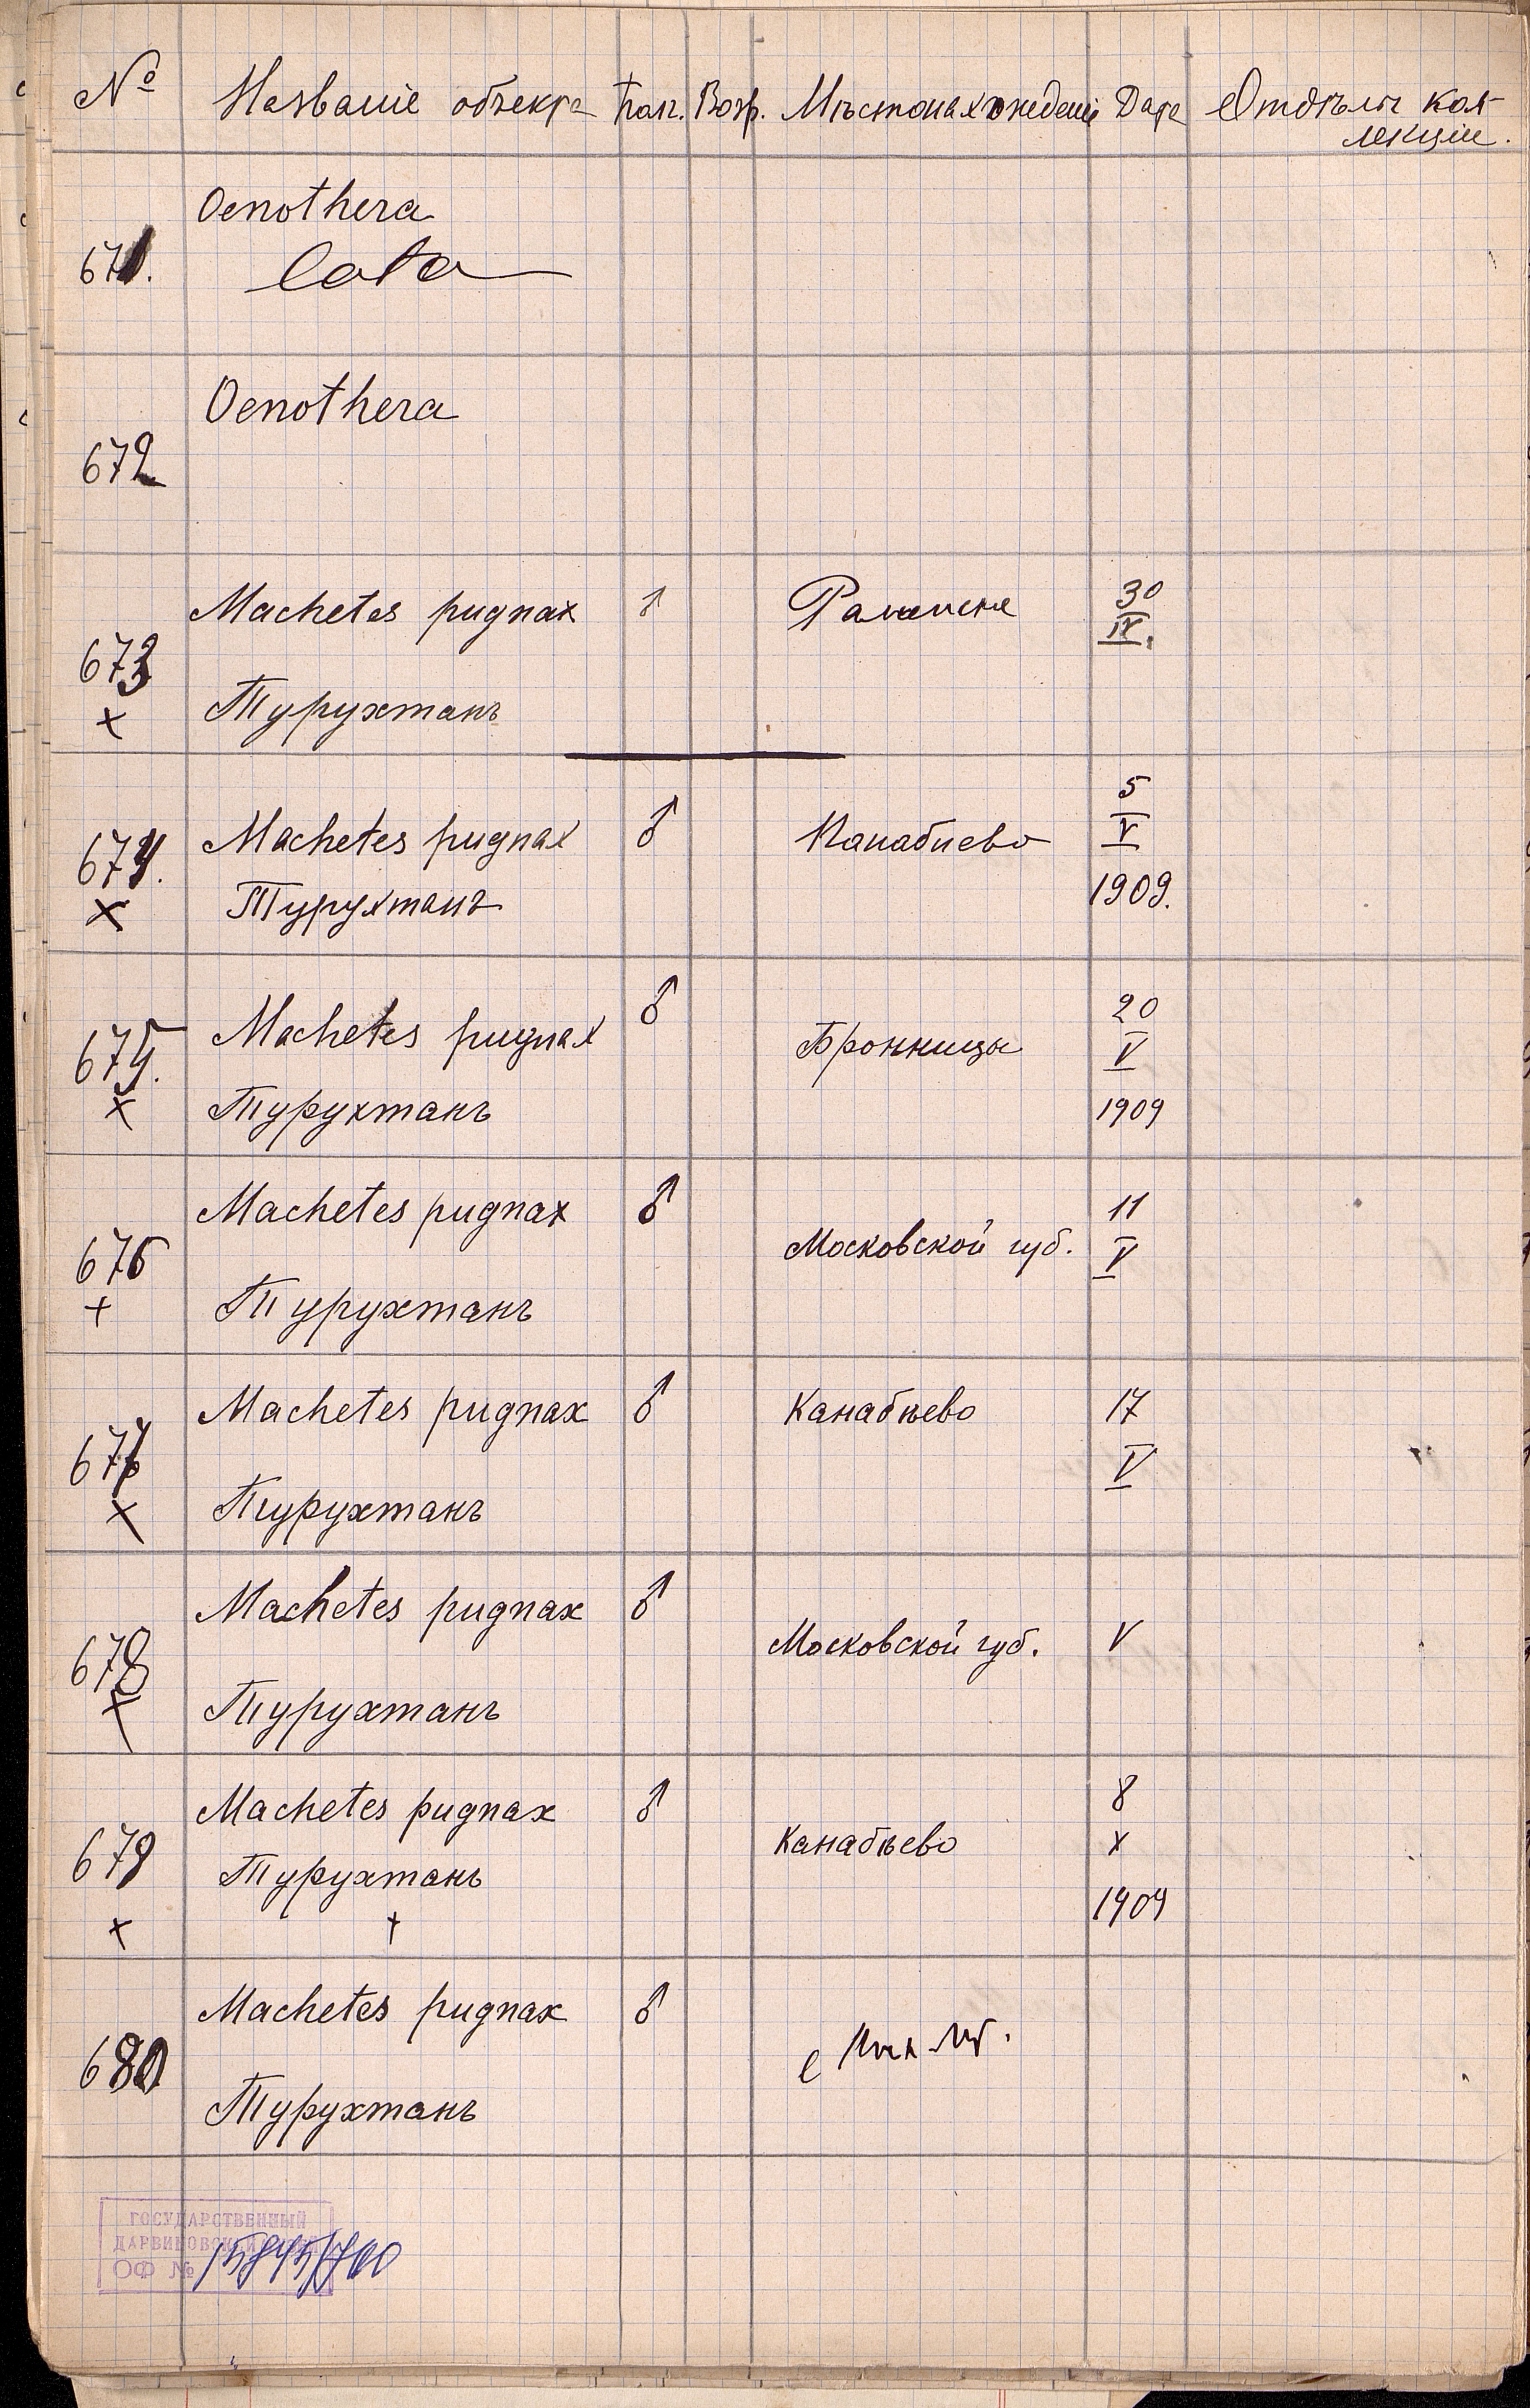 № Названіе объекта Пол. Возр. Мѣстонахожденіе Дата Отдѣлъ кол-
лекціи.
Oenothera
671. lata
Oenothera
672
Machetes pugnax ♂ 30
673 IV.
× Турухтанъ
5
674. Machetes pugnax ♂ Канабѣево V
× Турухтанъ 1909.
675. Machetes pugnax ♂ Бронницы 20
V
× Турухтанъ 1909
Machetes pugnax ♂ 11
676 Московской губ. V
+ Турухтанъ
Machetes pugnax ♂ Канабѣево 17
677 V
× Турухтанъ
Machetes pugnax ♂
678 Московской губ. V
× Турухтанъ
Machetes pugnax ♂ 8
679 Турухтанъ Канабѣево X
× † 1909
Machetes pugnax ♂
680
Турухтанъ
ГОСУДАРСТВЕННЫЙ
ДАРВИНОВСКИЙ
ОФ №